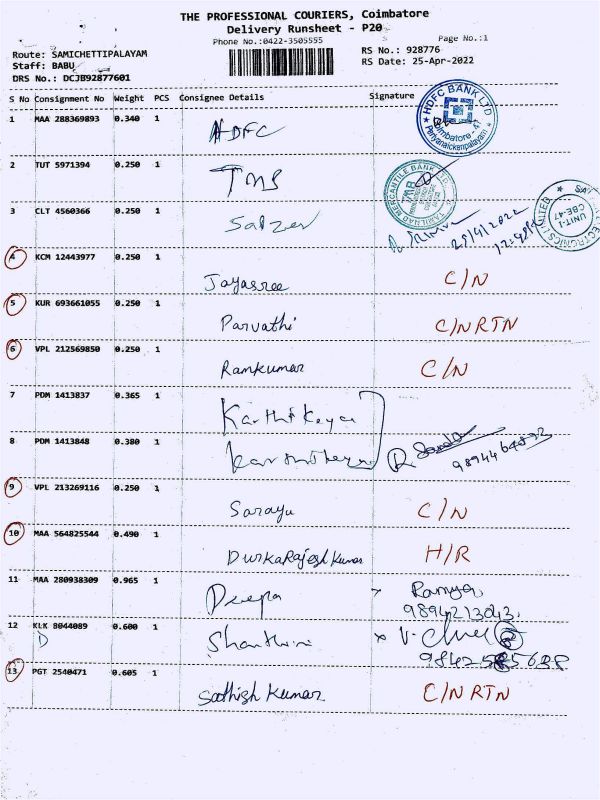 THE PROFESSIONAL COURIERS, Coimbatore
Delivery Runsheet - P20
Phone No.:0422-3505555
Page No.:1
Route: SAMICHETTIPALAYAM
RS No.: 928776
Staff: BABU
RS Date: 25-Apr-2022
DRS No.: DCJB92877601
S No Consignment No Weight PCS Consignee Details Signature
1 MAA 288369893 0.340 1 HDFC
HDFC BANK LTD
Coimbatore - 47
Periyanaickenpalayam
2 TUT 5971394 0.250 1 TMB
TAMILNAD MERCANTILE BANK LTD.
TMB
3 CLT 4560366 0.250 1 Salzer
25/4/2022
ELECTRONICS LIMITED
UNIT-I
CBE-47
4 KCM 12443977 0.250 1 Jayasree C/N
5 KUR 693661055 0.250 1 Parvathi C/N RTN
6 VPL 212569850 0.250 1 Ramkumar C/N
7 PDM 1413837 0.365 1 Karthikeyan
8 PDM 1413848 0.380 1 Karthikeyan
9 VPL 213269116 0.250 1 Sarayu C/N
10 MAA 564825544 0.490 1 DurkaRajesh Kumar H/R
11 MAA 280938309 0.965 1 Deepa Ramya
9894213043
12 KLK 8044089 0.600 1 Shanthini
D
13 PGT 2540471 0.605 1 Sathish Kumar C/N RTN